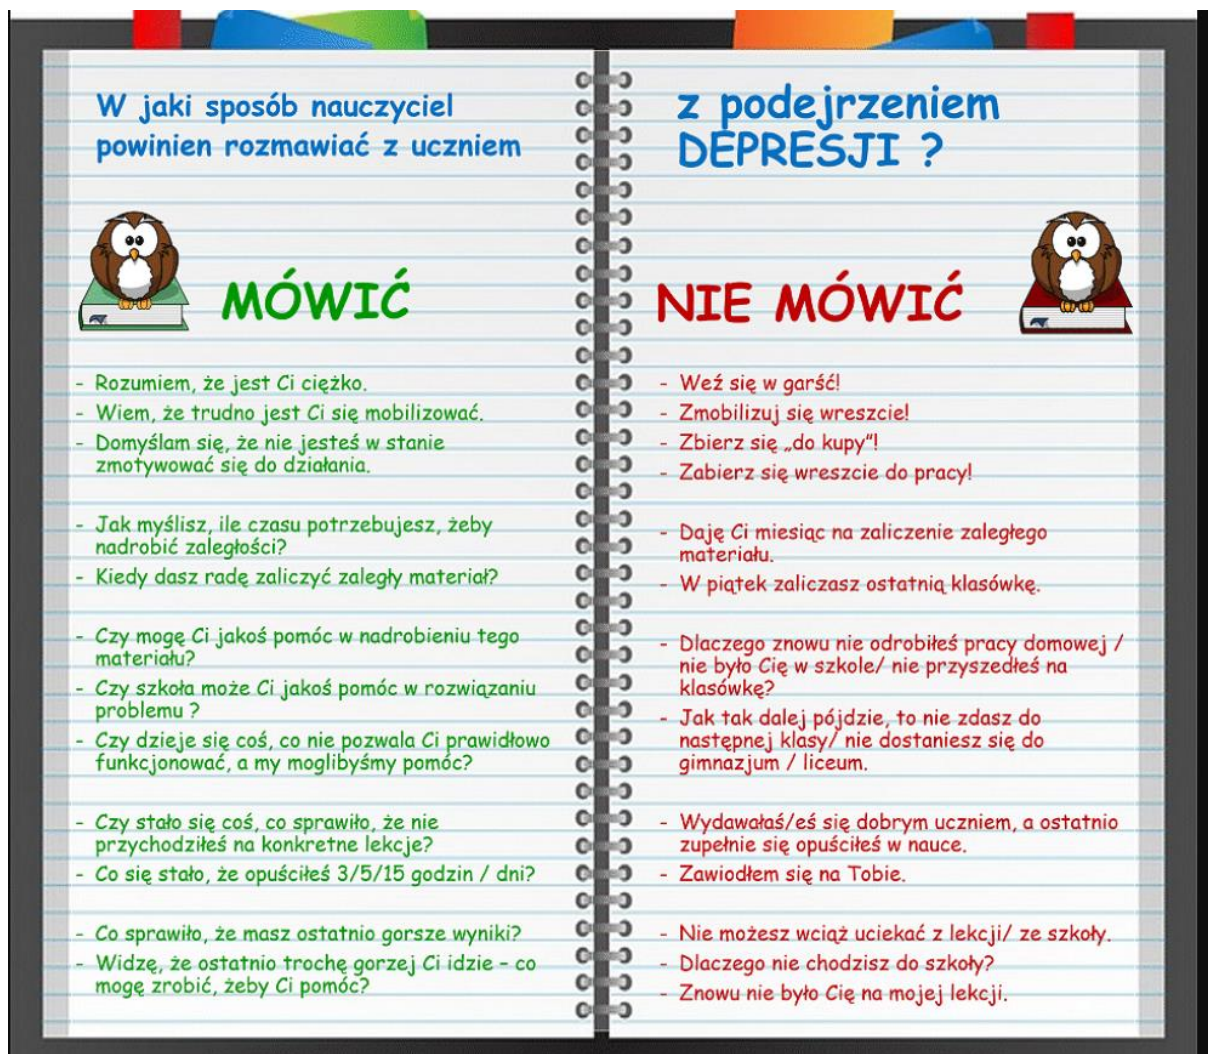 W jaki sposób nauczyciel
powinien rozmawiać z uczniem
z podejrzeniem
DEPRESJI ?
MÓWIĆ
- Rozumiem, że jest Ci ciężko.
- Wiem, że trudno jest Ci się mobilizować.
- Domyślam się, że nie jesteś w stanie
zmotywować się do działania.
- Jak myślisz, ile czasu potrzebujesz, żeby
nadrobić zaległości?
- Kiedy dasz radę zaliczyć zaległy materiał?
- Czy mogę Ci jakoś pomóc w nadrobieniu tego
materiału?
- Czy szkoła może Ci jakoś pomóc w rozwiązaniu
problemu ?
- Czy dzieje się coś, co nie pozwala Ci prawidłowo
funkcjonować, a my moglibyśmy pomóc?
- Czy stało się coś, co sprawiło, że nie
przychodziłeś na konkretne lekcje?
- Co się stało, że opuściłeś 3/5/15 godzin / dni?
- Co sprawiło, że masz ostatnio gorsze wyniki?
- Widzę, że ostatnio trochę gorzej Ci idzie – co
mogę zrobić, żeby Ci pomóc?
NIE MÓWIĆ
- Weź się w garść!
- Zmobilizuj się wreszcie!
- Zbierz się „do kupy"!
- Zabierz się wreszcie do pracy!
- Daję Ci miesiąc na zaliczenie zaległego
materiału.
- W piątek zaliczasz ostatnią klasówkę.
- Dlaczego znowu nie odrobiłeś pracy domowej /
nie było Cię w szkole/ nie przyszedłeś na
klasówkę?
- Jak tak dalej pójdzie, to nie zdasz do
następnej klasy/ nie dostaniesz się do
gimnazjum / liceum.
- Wydawałaś/eś się dobrym uczniem, a ostatnio
zupełnie się opuściłeś w nauce.
- Zawiodłem się na Tobie.
- Nie możesz wciąż uciekać z lekcji/ ze szkoły.
- Dlaczego nie chodzisz do szkoły?
- Znowu nie było Cię na mojej lekcji.